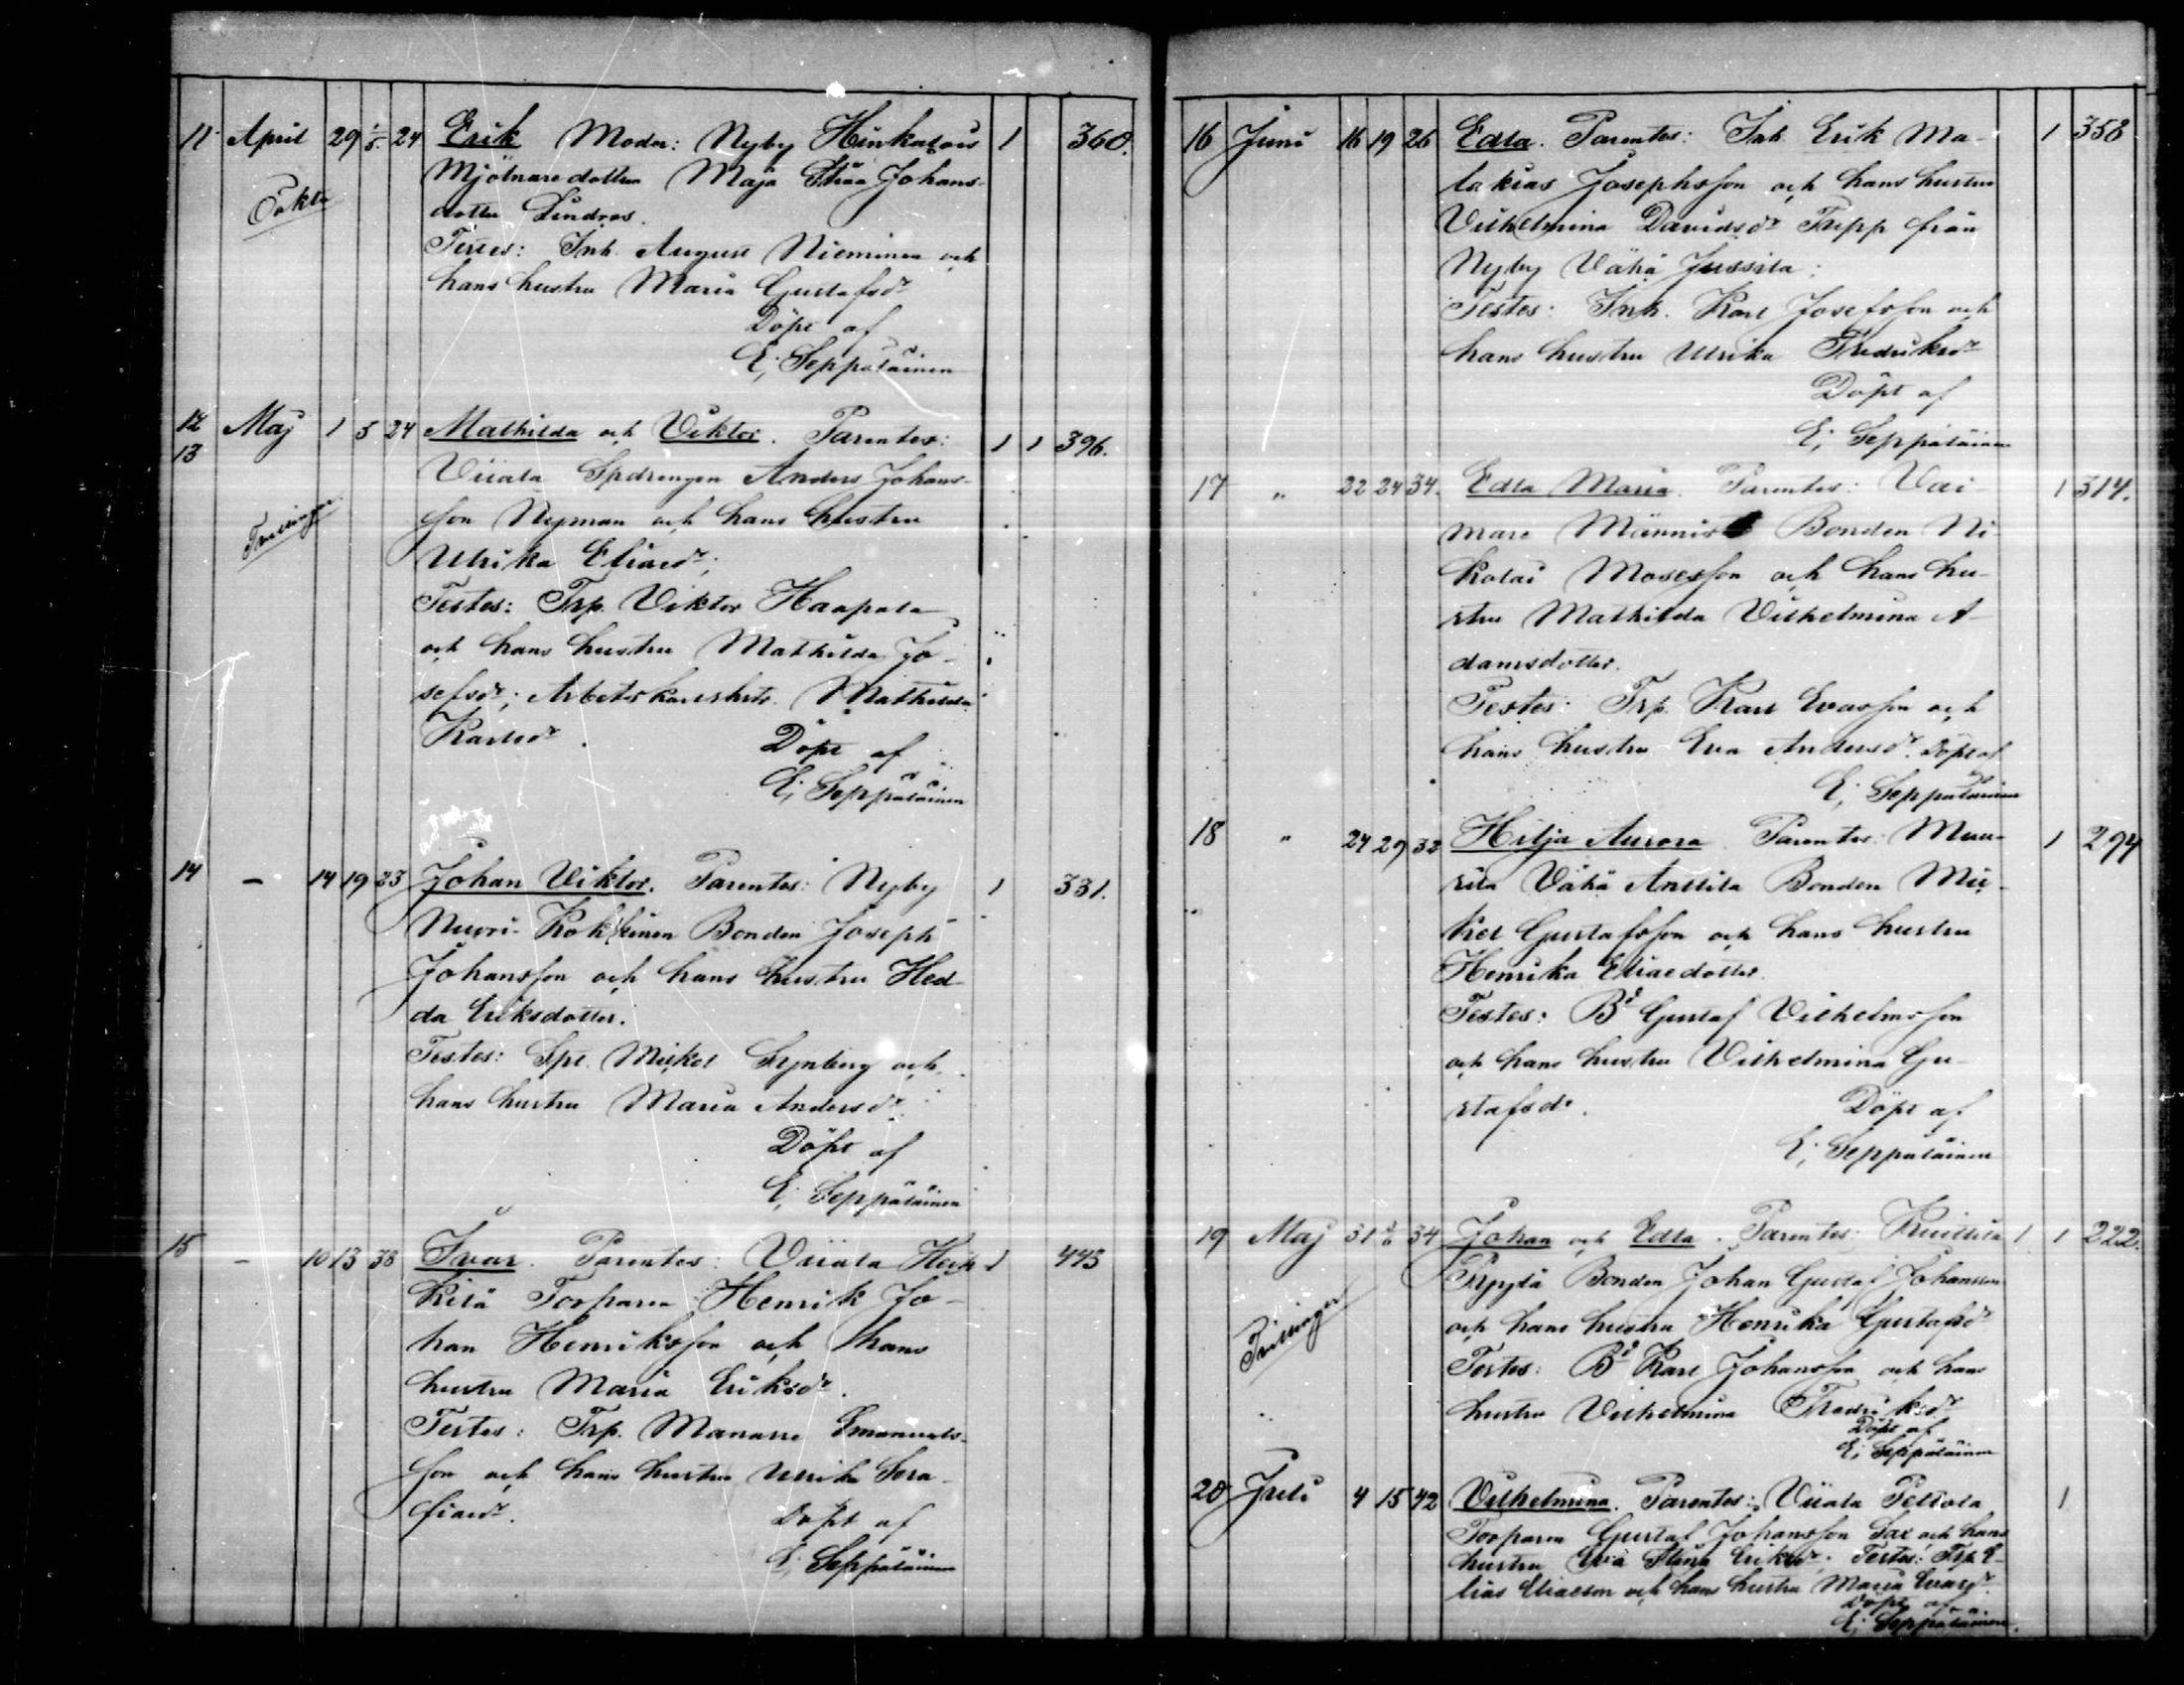 11 April 29 1/5 24 Erik Moder: Nyby Hinkalois 1 360.
Mjölnaredottren Maja Stina Johans-
Oäkta
dotter Lindros.
Testes: Inh. August Nieminen och
hans hustru Maria Gustafsdr
Döpt af
E; Seppäläinen
12 Maj 1 5 24 Mathilda och Viktor. Parentes: 1 1 396.
13
Viiala Spdrengen Anders Johans-
son Nyman och hans hustru
Tvillingar
Ulrika Eliaedr;
Testes: Trp. Viktor Haapala
och hans hustru Mathilda Jo-
sefsdr; Arbetskarlshstr. Mathilda
Karlsdr. Döpt af
E; Seppäläinen
14 – 14 19 23 Johan Viktor. Parentes: Nyby 1 331.
Nuori-Kokkinen Bonden Joseph
Johansson och hans hustru Hed-
da Eriksdotter.
Testes: Spt. Mickel Synberg och
hans hustru Maria Andersdr.
Döpt af
E; Seppäläinen
15 – 10 13 38 Ivar. Parentes: Viiala Heik- 1 443
kilä Torparen Henrik Jo-
han Henriksson och hans
hustru Maria Eriksdr.
Testes: Trp. Manasse Emanuels-
son och hans hustru Ulrika Sera-
fiaedr. Döpt af
E; Seppäläinen
16 Juni 16 19 26 Edla. Parentes: Inh. Erik Ma- 1 358
lakias Josephsson och hans hustru
Vilhelmina Davidsdr Tripp från
Nyby Vähä Jussila;
Testes: Inh. Karl Josefsson och
hans hustru Ulrika Fredriksdr
Döpt af
E; Seppäläinen
17 " 22 24 34. Edla Maria. Parentes: Voi- 1 314.
mare Männistö Bonden Ni-
kolai Mosesson och hans hu-
stru Mathilda Vilhelmina A-
damsdotter.
Testes: Trp. Karl Evasson och
hans hustru Eva Andersdr. Döpt af
E; Seppäläinen
18 " 24 29 32 Hilja Aurora. Parentes: Muu- 1 294
rila Vähä Anttila Bonden Mi-
kel Gustafsson och hans hustru
Henrika Eliaedotter.
Testes: Bd Gustaf Vilhelmsson
och hans hustru Vilhelmina Gu-
stafsdr. Döpt af
E; Seppäläinen
19 Maj 31 2/6 34 Johan och Edla. Parentes: Knuttila 1 1 222.
Pryytä Bonden Johan Gustaf Johansson
och hans hustru Henrika Gustafsdr
Tvillingar
Testes: Bd Karl Johansson och hans
hustru Vilhelmina Fredriksdr
Döpt af
E; Seppäläinen
20 Juli 4 15 42 Vilhelmina. Parentes: Viiala Peltola 1
Torparen Gustaf Johansson Sax och hans
hustru Eva Stina Eriksdr; Testes: Trp. E-
lias Eliaeson och hans hustru Maria Evaedr.
Döpt af
E; Seppäläinen.